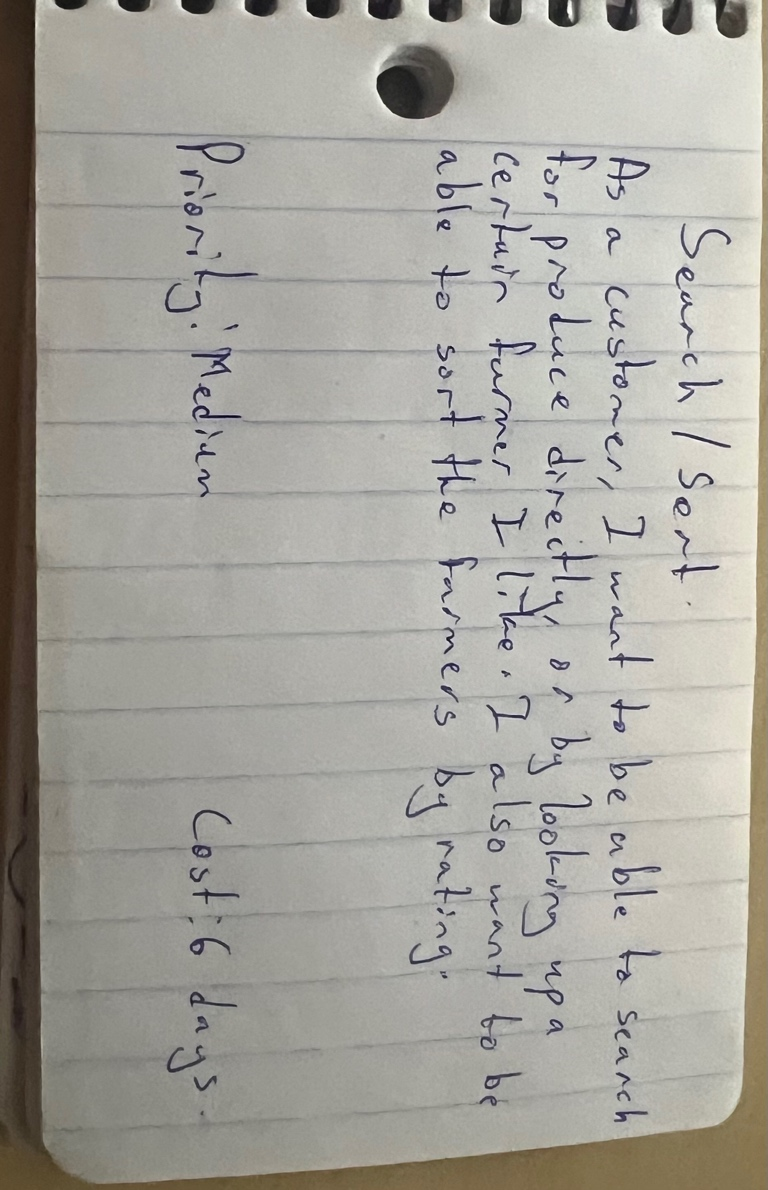 Search / Sort.
As a customer, I want to be able to search
for produce directly, or by looking up a
certain farmer I like. I also want to be
able to sort the farmers by rating.
Priority: Medium
Cost: 6 days.